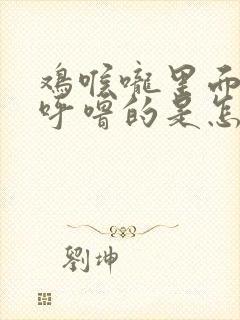 鸡喉咙里而
呼噜的是怎
劉坤